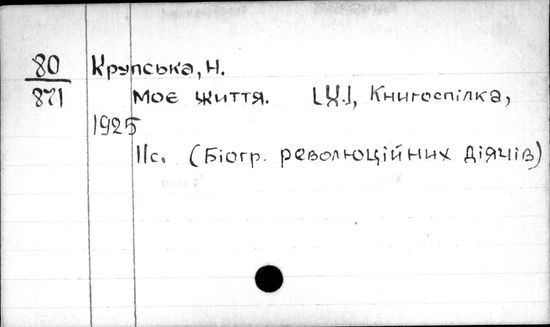 80
871
Крупська, Н.
Моє життя. [Х.], Книгоспілка,
1925
11с. (Біогр. революційних діячів)